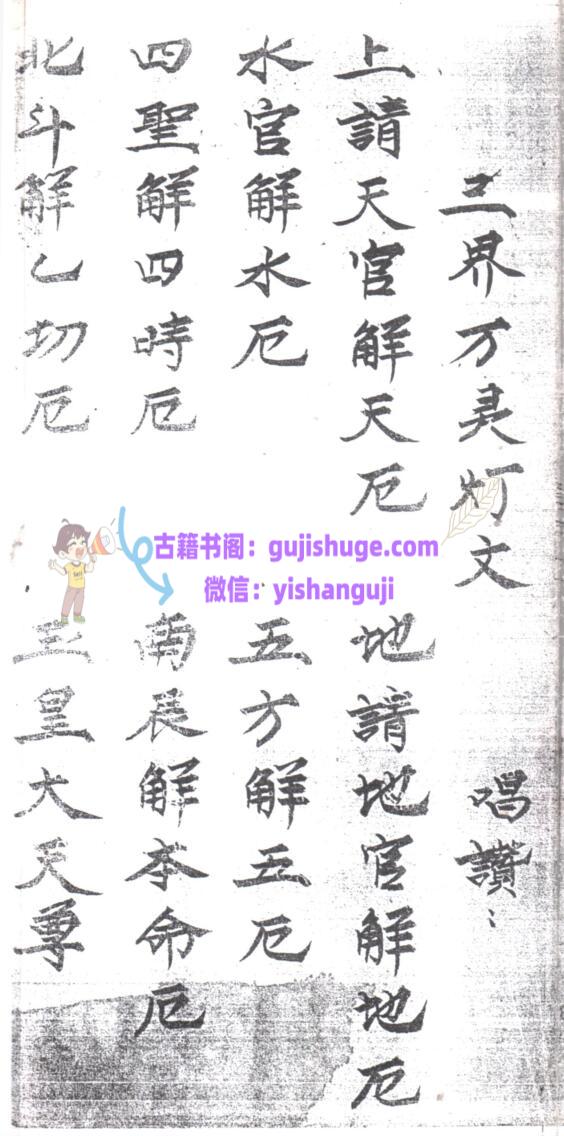 三界万灵灯文　唱讚：
上請天官解天厄　地請地官解地厄
水官解水厄　五方解五厄
四聖解四時厄　南辰解本命厄
北斗解乙切厄　玉皇大天尊
古籍书阁：gujishuge.com
微信：yishanguji